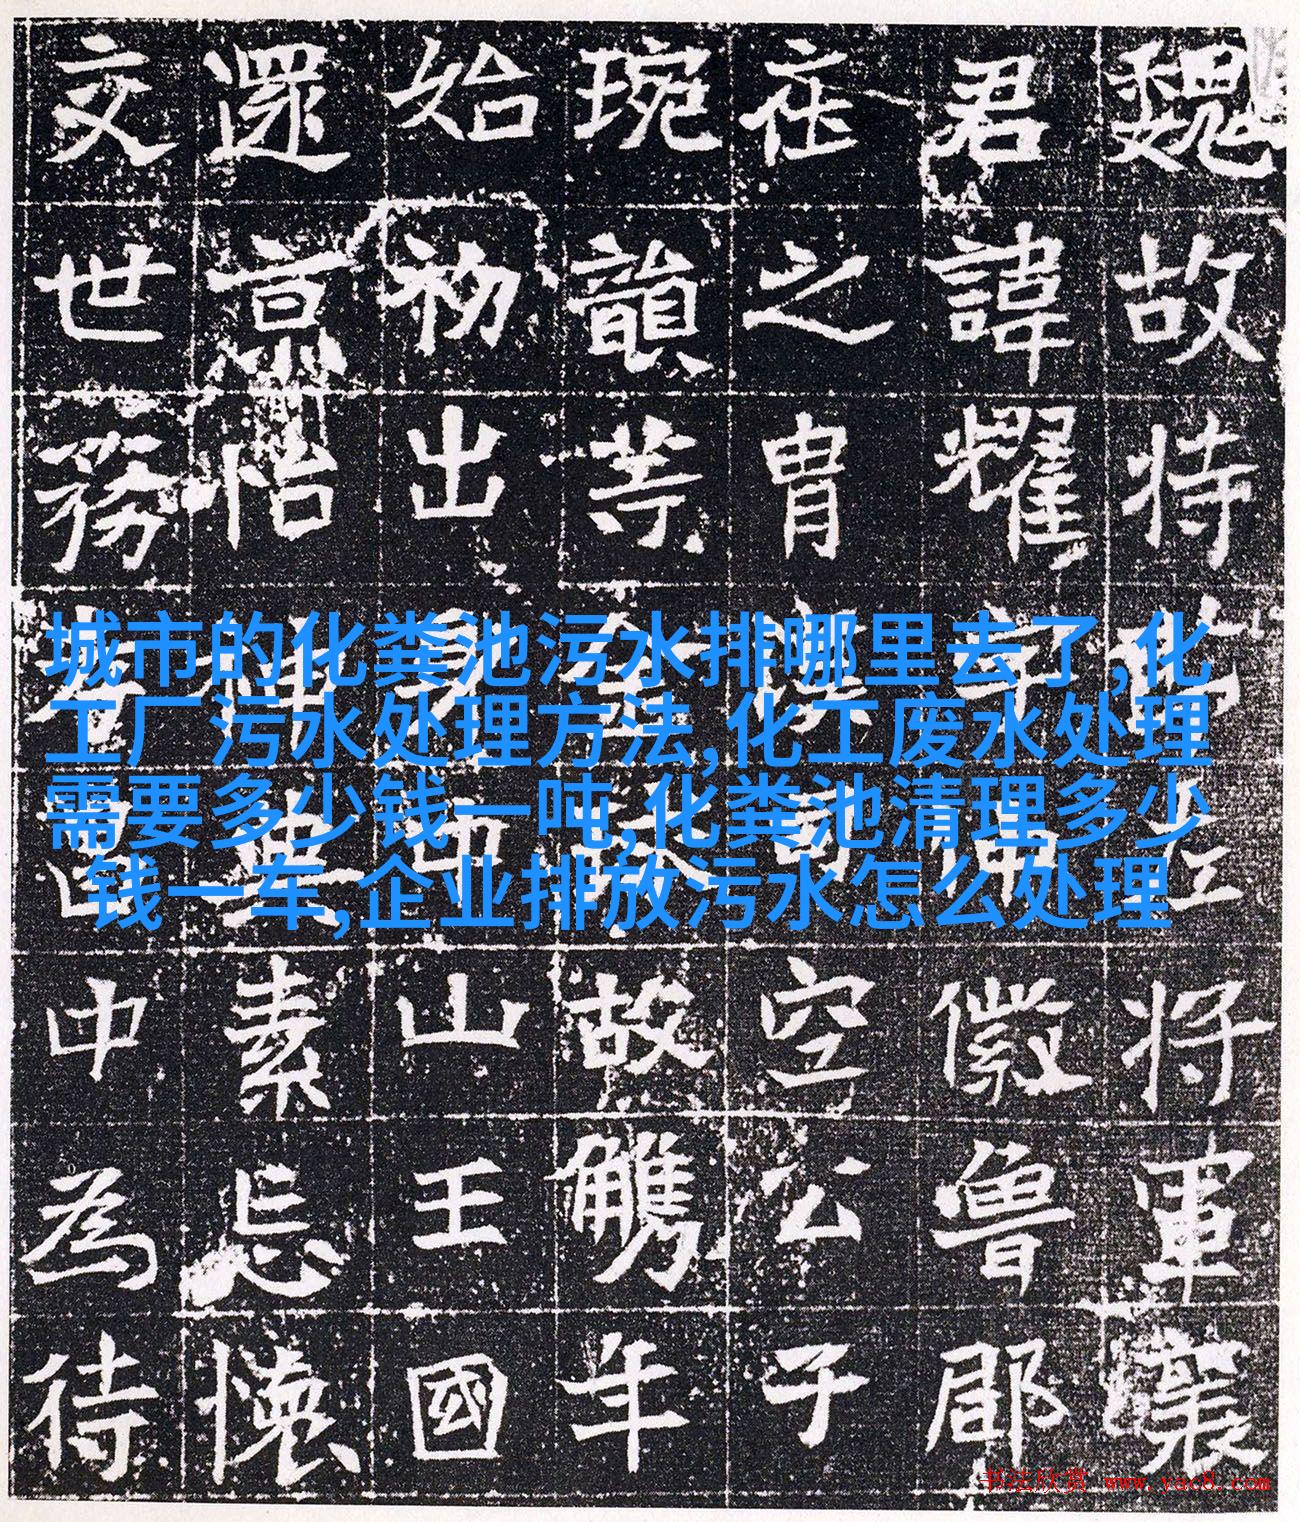 魏故持将軍襄
君諱耀字徽魯郡
在之胄空公子
琬韻故年
始初出山王國
還京怡素忘懷
交世務中為待
城市的化粪池污水排哪里去了,化
工厂污水处理方法,化工废水处理
需要多少钱一吨,化粪池清理多少
钱一车,企业排放污水怎么处理
书法欣赏 www.yac8.com